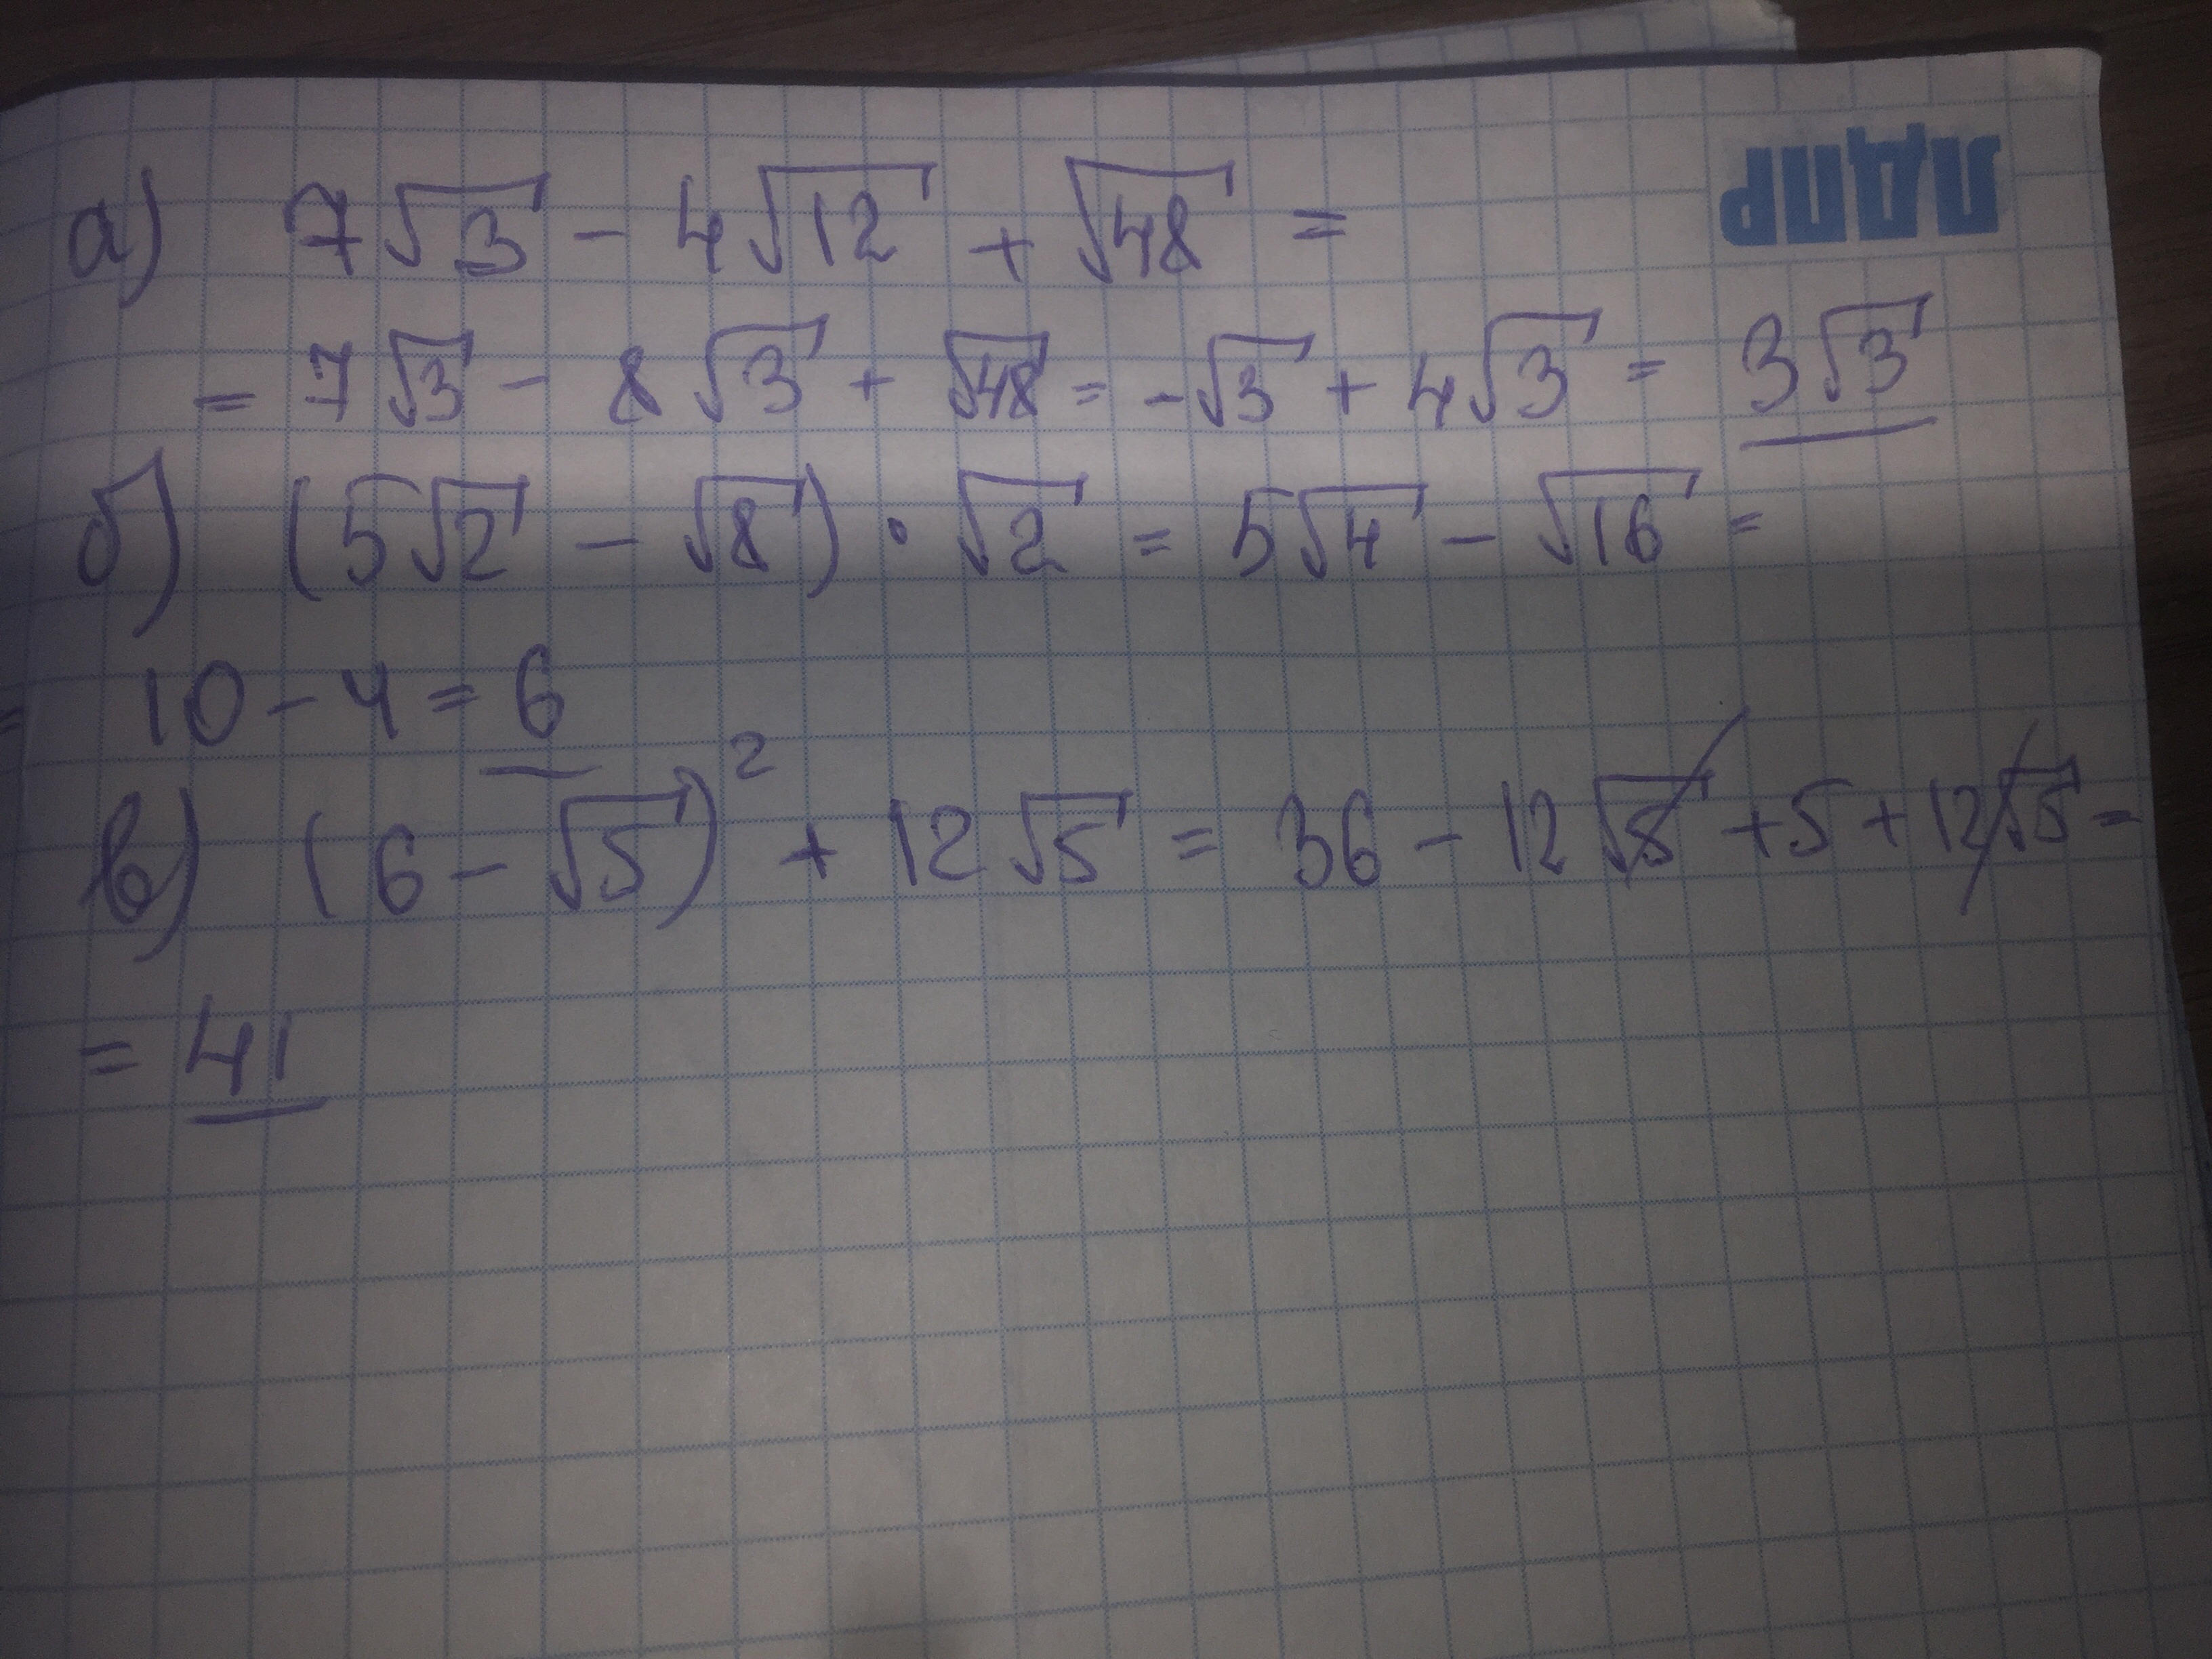 ЛДПР
а) 7√3 - 4√12 + √48 =
= 7√3 - 8√3 + √48 = -√3 + 4√3 = 3√3
б) (5√2 - √8) · √2 = 5√4 - √16 =
= 10 - 4 = 6
в) (6 - √5)² + 12√5 = 36 - 12√5 + 5 + 12√5 =
= 41